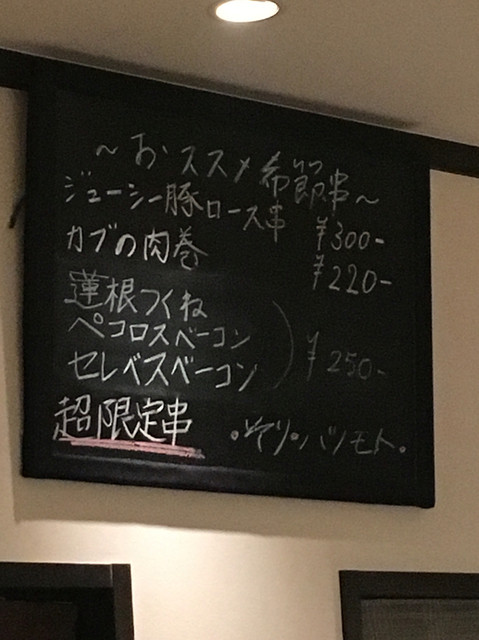 ~おススメ希節串~
ジューシー豚ロース串 ¥300-
カブの肉巻 ¥220-
蓮根つくね
ペコロスベーコン
セレベスベーコン ¥250-
超限定串 ・ソリ・ハツモト・